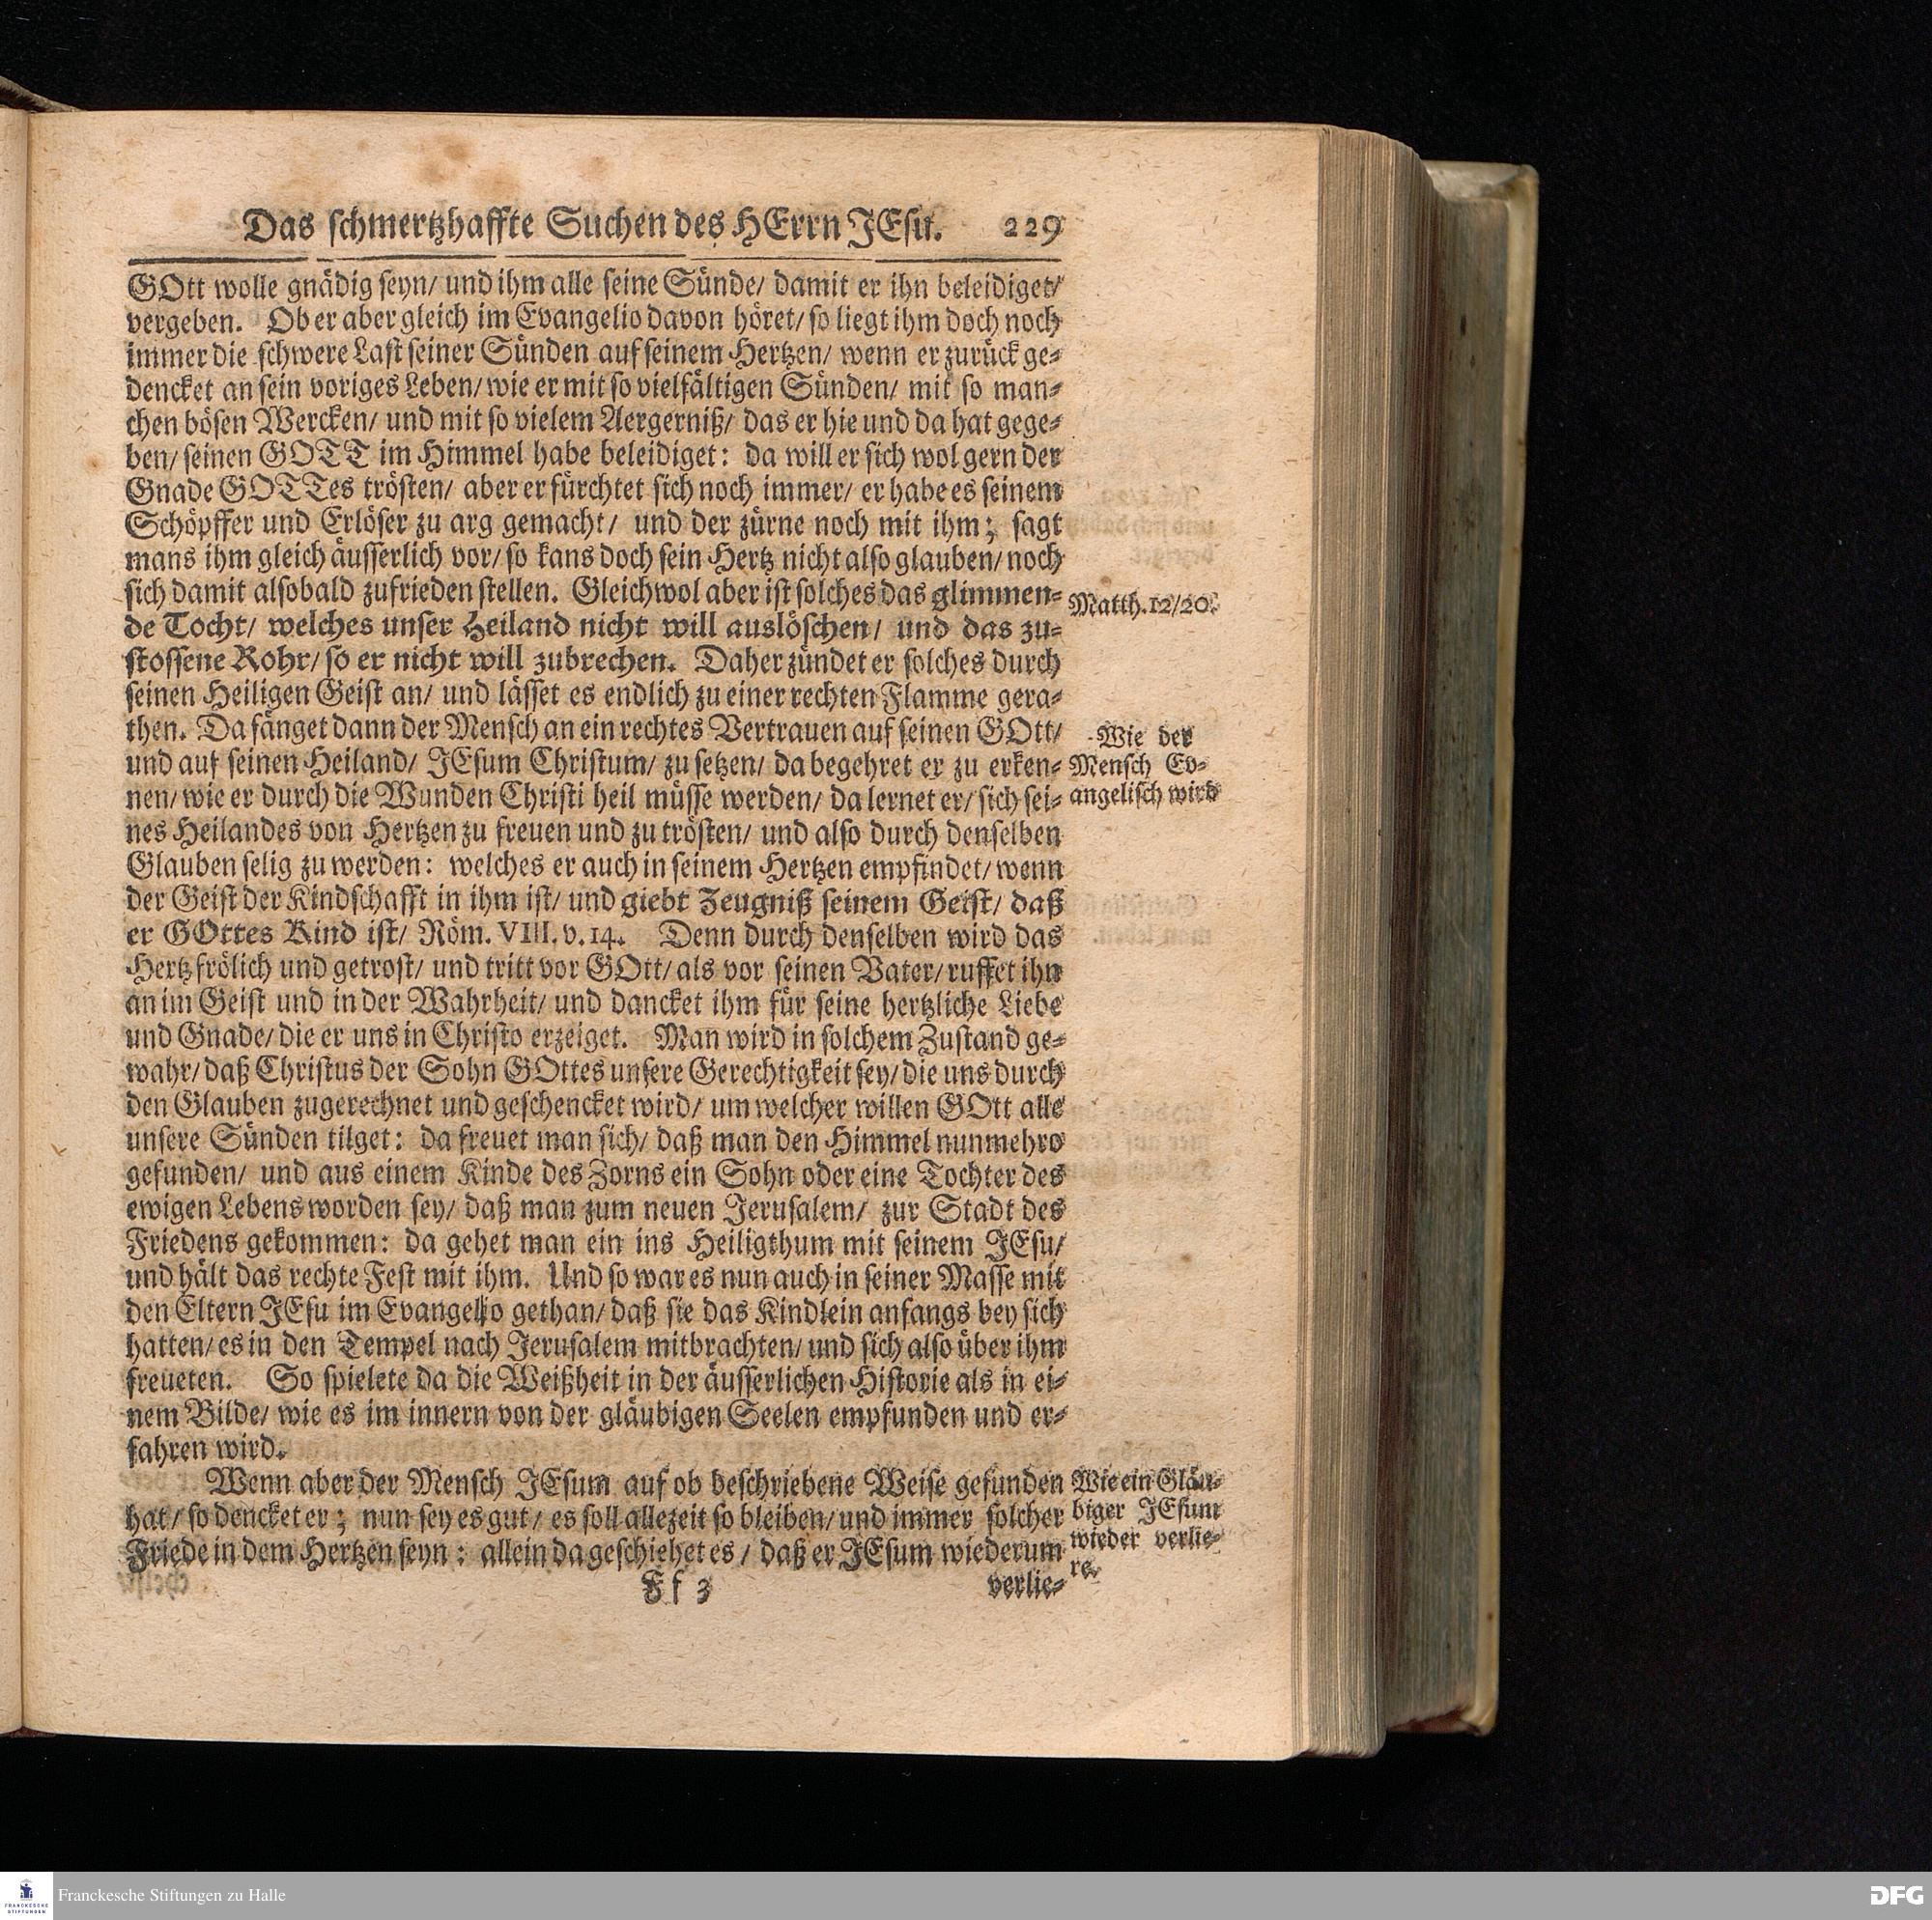 Das schmertzhaffte Suchen des HErrn JEsu. 229
GOtt wolle gnädig seyn/ und ihm alle seine Sünde/ damit er ihn beleidiget/
vergeben. Ob er aber gleich im Evangelio davon höret/ so liegt ihm doch noch
immer die schwere Last seiner Sünden auf seinem Hertzen/ wenn er zurück ge-
dencket an sein voriges Leben/ wie er mit so vielfältigen Sünden/ mit so man-
chen bösen Wercken/ und mit so vielem Aergerniß/ das er hie und da hat gege-
ben/ seinen GOTT im Himmel habe beleidiget: da will er sich wol gern der
Gnade GOTTes trösten/ aber er fürchtet sich noch immer/ er habe es seinem
Schöpffer und Erlöser zu arg gemacht/ und der zürne noch mit ihm; sagt
mans ihm gleich äusserlich vor/ so kans doch sein Hertz nicht also glauben/ noch
sich damit alsobald zufrieden stellen. Gleichwol aber ist solches das glimmen-
Matth. 12/20.
de Tocht/ welches unser Heiland nicht will auslöschen/ und das zu-
stossene Rohr/ so er nicht will zubrechen. Daher zündet er solches durch
seinen Heiligen Geist an/ und lässet es endlich zu einer rechten Flamme gera-
then. Da fänget dann der Mensch an ein rechtes Vertrauen auf seinen GOtt/
und auf seinen Heiland/ JEsum Christum/ zu setzen/ da begehret er zu erken-
nen/ wie er durch die Wunden Christi heil müsse werden/ da lernet er/ sich sei-
Wie der
Mensch Ev-
angelisch wird
nes Heilandes von Hertzen zu freuen und zu trösten/ und also durch denselben
Glauben selig zu werden: welches er auch in seinem Hertzen empfindet/ wenn
der Geist der Kindschafft in ihm ist/ und giebt Zeugniß seinem Geist/ daß
er GOttes Kind ist/ Röm. VIII. v. 14. Denn durch denselben wird das
Hertz frölich und getrost/ und tritt vor GOtt/ als vor seinen Vater/ ruffet ihn
an im Geist und in der Wahrheit/ und dancket ihm für seine hertzliche Liebe
und Gnade/ die er uns in Christo erzeiget. Man wird in solchem Zustand ge-
wahr/ daß Christus der Sohn GOttes unsere Gerechtigkeit sey/ die uns durch
den Glauben zugerechnet und geschencket wird/ um welcher willen GOtt alle
unsere Sünden tilget: da freuet man sich/ daß man den Himmel nunmehro
gefunden/ und aus einem Kinde des Zorns ein Sohn oder eine Tochter des
ewigen Lebens worden sey/ daß man zum neuen Jerusalem/ zur Stadt des
Friedens gekommen: da gehet man ein ins Heiligthum mit seinem JEsu/
und hält das rechte Fest mit ihm. Und so war es nun auch in seiner Masse mit
den Eltern JEsu im Evangelio gethan/ daß sie das Kindlein anfangs bey sich
hatten/ es in den Tempel nach Jerusalem mitbrachten/ und sich also über ihm
freueten. So spielete da die Weißheit in der äusserlichen Historie als in ei-
nem Bilde/ wie es im innern von der gläubigen Seelen empfunden und er-
fahren wird.
Wenn aber der Mensch JEsum auf ob beschriebene Weise gefunden
hat/ so dencket er; nun sey es gut/ es soll allezeit so bleiben/ und immer solcher
Friede in dem Hertzen seyn: allein da geschiehet es/ daß er JEsum wiederum
Wie ein Gläu-
biger JEsum
wieder verlie-
re.
Ff 3 verlie-
Franckesche Stiftungen zu Halle
FRANCKESCHE
STIFTUNGEN
DFG